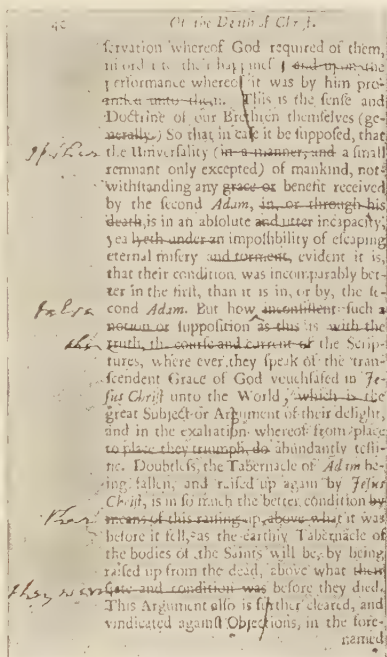 42 Of the Death of Christ.
servation whereof God required of them,
in order to their happiness, and upon the
performance whereof it was by him pro-
mised unto them. This is the sense and
Doctrine of our Brethren themselves (ge-
nerally.) So that in case it be supposed, that
the Universality (in a manner, and a small
remnant only excepted) of mankind, not-
withstanding any grace or benefit received
by the second Adam, in, or through his
death, is in an absolute and utter incapacity,
yea lyeth under an impossibility of escaping
eternal misery and torment, evident it is,
that their condition was incomparably bet-
ter in the first, than it is in, or by, the se-
cond Adam. But how inconsistent such a
false
notion or supposition as this is with the
the
truth, the course and current of the Scrip-
tures, where ever they speak of the tran-
scendent Grace of God vouchsafed in Je-
sus Christ unto the World, which is the
great Subject or Argument of their delight,
and in the exaltation whereof from place
to place they triumph, do abundantly testi-
fie. Doubtless, the Tabernacle of Adam be-
ing fallen, and raised up again by Jesus
Christ, is in so much the better condition by
than
means of this raising up, above what it was
before it fell, as the earthly Tabernacle of
the bodies of the Saints will be, by being
raised up from the dead, above what their
they were
state and condition was before they died.
This Argument also is further cleared, and
vindicated against Objections, in the fore-
named